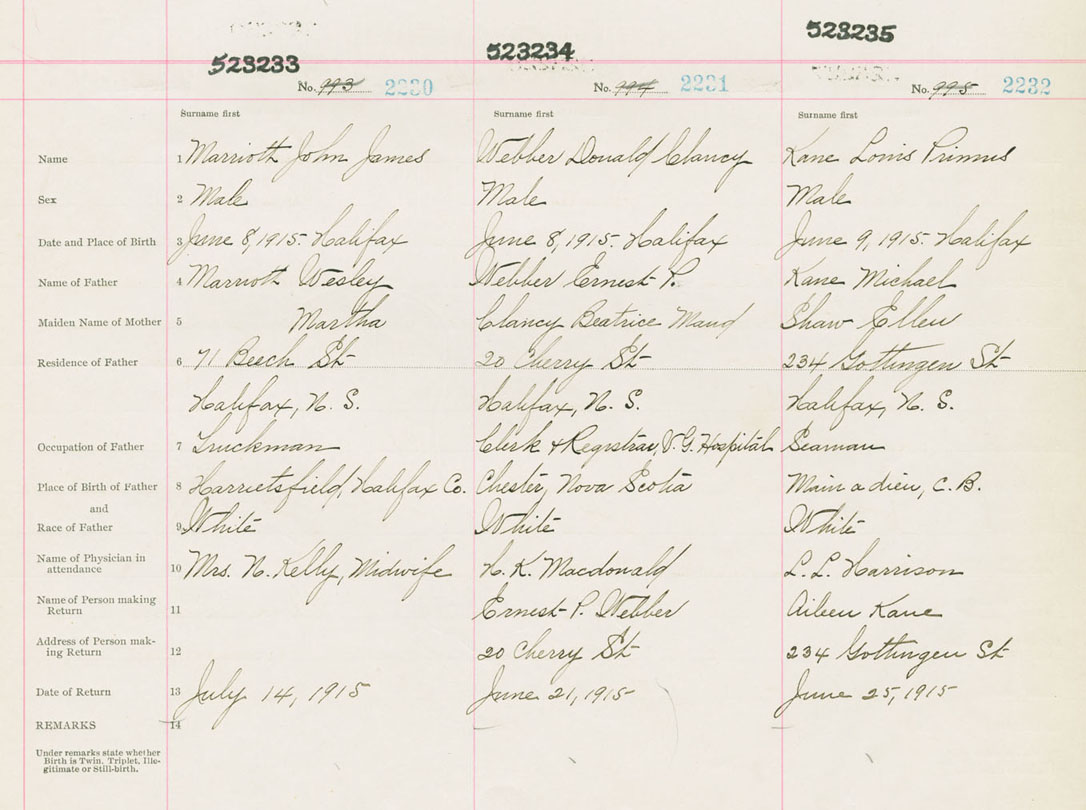 523233 523234 523235
No. 993 2230 No. 994 2231 No. 995 2232
Surname first Surname first Surname first
Name 1 Marrioth John James Webber Donald Clancy Kane Louis Primus
Sex 2 Male Male Male
Date and Place of Birth 3 June 8, 1915. Halifax June 8, 1915. Halifax June 9, 1915. Halifax
Name of Father 4 Marrioth Wesley Webber Ernest P. Kane Michael
Maiden Name of Mother 5 Martha Clancy Beatrice Maud Shaw Ellen
Residence of Father 6 71 Beech St 20 Cherry St 234 Gottingen St
Halifax, N. S. Halifax, N. S. Halifax, N. S.
Occupation of Father 7 Truckman Clerk & Registrar, V. G. Hospital Seaman
Place of Birth of Father 8 Harrietsfield, Halifax Co. Chester, Nova Scotia Main a dieu, C. B.
and
Race of Father 9 White White White
Name of Physician in
attendance 10 Mrs. N. Kelly, Midwife H. K. Macdonald L. L. Harrison
Name of Person making
Return 11 Ernest P. Webber Aileen Kane
Address of Person mak-
ing Return 12 20 Cherry St 234 Gottingen St
Date of Return 13 July 14, 1915 June 21, 1915 June 25, 1915
REMARKS 14
Under remarks state whether
Birth is Twin, Triplet, Ille-
gitimate or Still-birth.